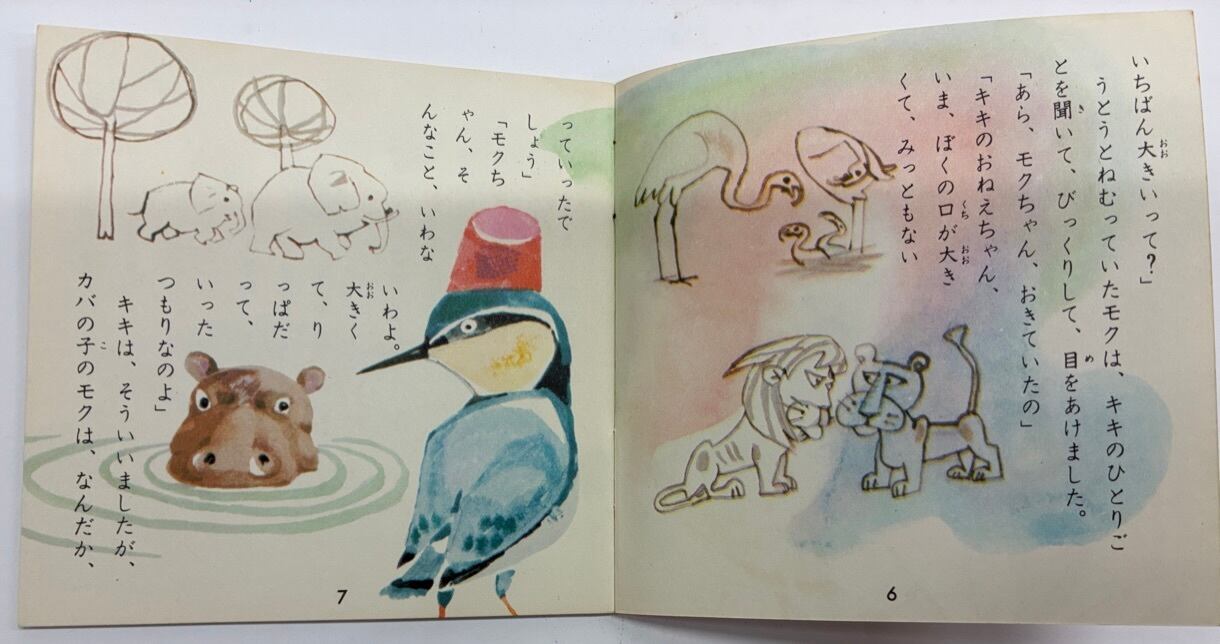 いちばん大きいって?」
うとうとねむっていたモクは、キキのひとりご
とを聞いて、びっくりして、目をあけました。
「あら、モクちゃん、おきていたの」
「キキのおねえちゃん、
いま、ぼくの口が大き
くて、みっともない
6
っていったで
しょう」
「モクち
ゃん、そ
んなこと、いわな
いわよ。
大きく
て、り
っぱだ
って、
いった
つもりなのよ」
キキは、そういいましたが、
カバの子のモクは、なんだか、
7